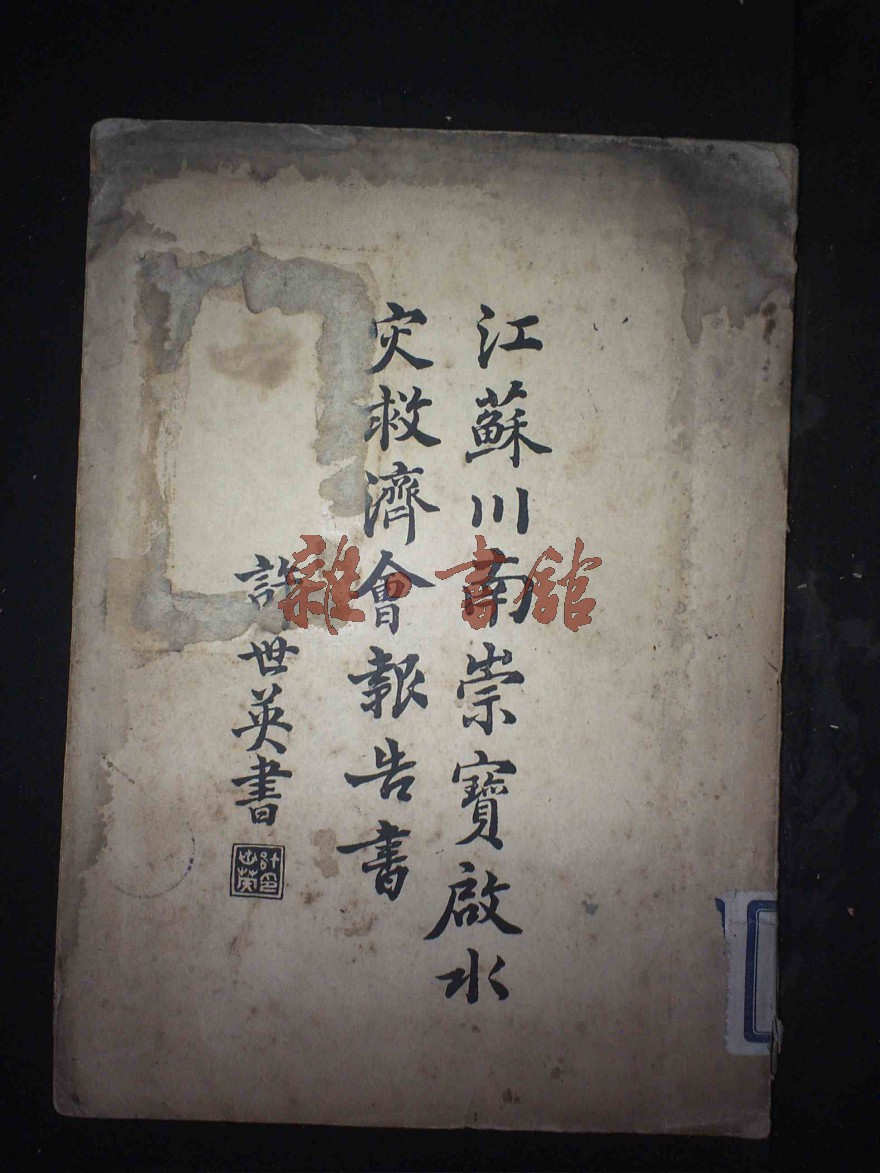 江蘇川南崇寶啟水
灾救濟會報告書
許世英書
許印世英
雜·書館